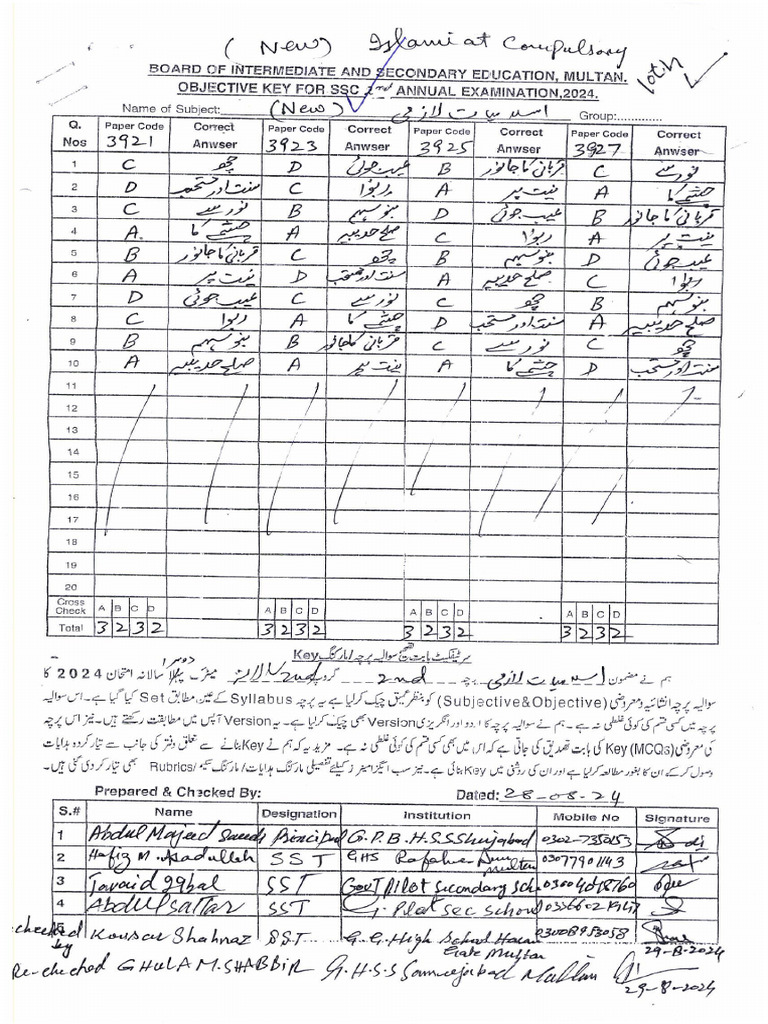 (New) Islamiat Compulsory
BOARD OF INTERMEDIATE AND SECONDARY EDUCATION, MULTAN.
10th
OBJECTIVE KEY FOR SSC 2nd ANNUAL EXAMINATION,2024.
Name of Subject: (New) اسلامیات لازمی Group:............
Q. Nos Paper Code 3921 Correct Anwser Paper Code 3923 Correct Anwser Paper Code 3925 Correct Anwser Paper Code 3927 Correct Anwser
1 C چھ D عیب جوئی B قربانی کا جانور C نور سے
2 D سنت اور مستحب C ربوٰا A نیت پر A چشمے کا
3 C نور سے B بنو سہم D عیب جوئی B قربانی کا جانور
4 A. چشمے کا A صلح حدیبیہ C ربوٰا A نیت پر
5 B قربانی کا جانور C چھ B بنو سہم D عیب جوئی
6 A نیت پر D سنت اور مستحب A صلح حدیبیہ C ربوٰا
7 D عیب جوئی C نور سے C چھ B بنو سہم
8 C ربوٰا A چشمے کا D سنت اور مستحب A صلح حدیبیہ
9 B بنو سہم B قربانی کا جانور C نور سے C چھ
10 A صلح حدیبیہ A نیت پر A چشمے کا D سنت اور مستحب
11
12
13
14
15
16
17
18
19
20
Cross Check A B C D A B C D A B C D A B C D
Total 3 2 3 2 3 2 3 2 3 2 3 2 3 2 3 2
سرٹیفکیٹ بابت تصحیح سوالیہ پرچہ / مارکنگ Key
دوسرا
ہم نے مضمون اسلامیات لازمی پرچہ 2nd گروپ میٹرک پہلا سالانہ امتحان 2024 کا
سوالیہ پرچہ انشائیہ و معروضی (Subjective&Objective) کو بنظر عمیق چیک کر لیا ہے یہ پرچہ Syllabus کے عین مطابق Set کیا گیا ہے۔ اس سوالیہ
پرچہ میں کسی قسم کی کوئی غلطی نہ ہے۔ ہم نے سوالیہ پرچہ کا اردو اور انگریزی Version بھی چیک کر لیا ہے۔ یہ Version آپس میں مطابقت رکھتے ہیں۔ نیز اس پرچہ
کی معروضی (MCQs) Key کی بابت تصدیق کی جاتی ہے کہ اس میں بھی کسی قسم کی کوئی غلطی نہ ہے۔ مزید یہ کہ ہم نے Key بنانے سے متعلق دفتر کی جانب سے تیار کردہ ہدایات
وصول کر کے ان کا بغور مطالعہ کر لیا ہے اور ان کی روشنی میں Key بنائی ہے۔ نیز سب ایگزامینرز کیلئے تفصیلی مارکنگ ہدایات / مارکنگ سکیم / Rubrics بھی تیار کر دی گئی ہیں۔
Prepared & Checked By: Dated: 28-08-24
S.# Name Designation Institution Mobile No Signature
1 Abdul Majeed Principal G.P.B.H.S.S Shujabad 0302-7350153
2 Hafiz M. Asadullah SST GHS Multan 03077901143
3 Javaid Iqbal SST Govt Pilot Secondary Sch 03004018760
4 Abdul Sattar SST G. Pilot Sec School
Re-checked by Kousar Shahnaz SST G.G. High School Gate Multan 03008953058 29-8-2024
Re-checked GHULAM SHABBIR G.H.S.S Multan
29-8-2024